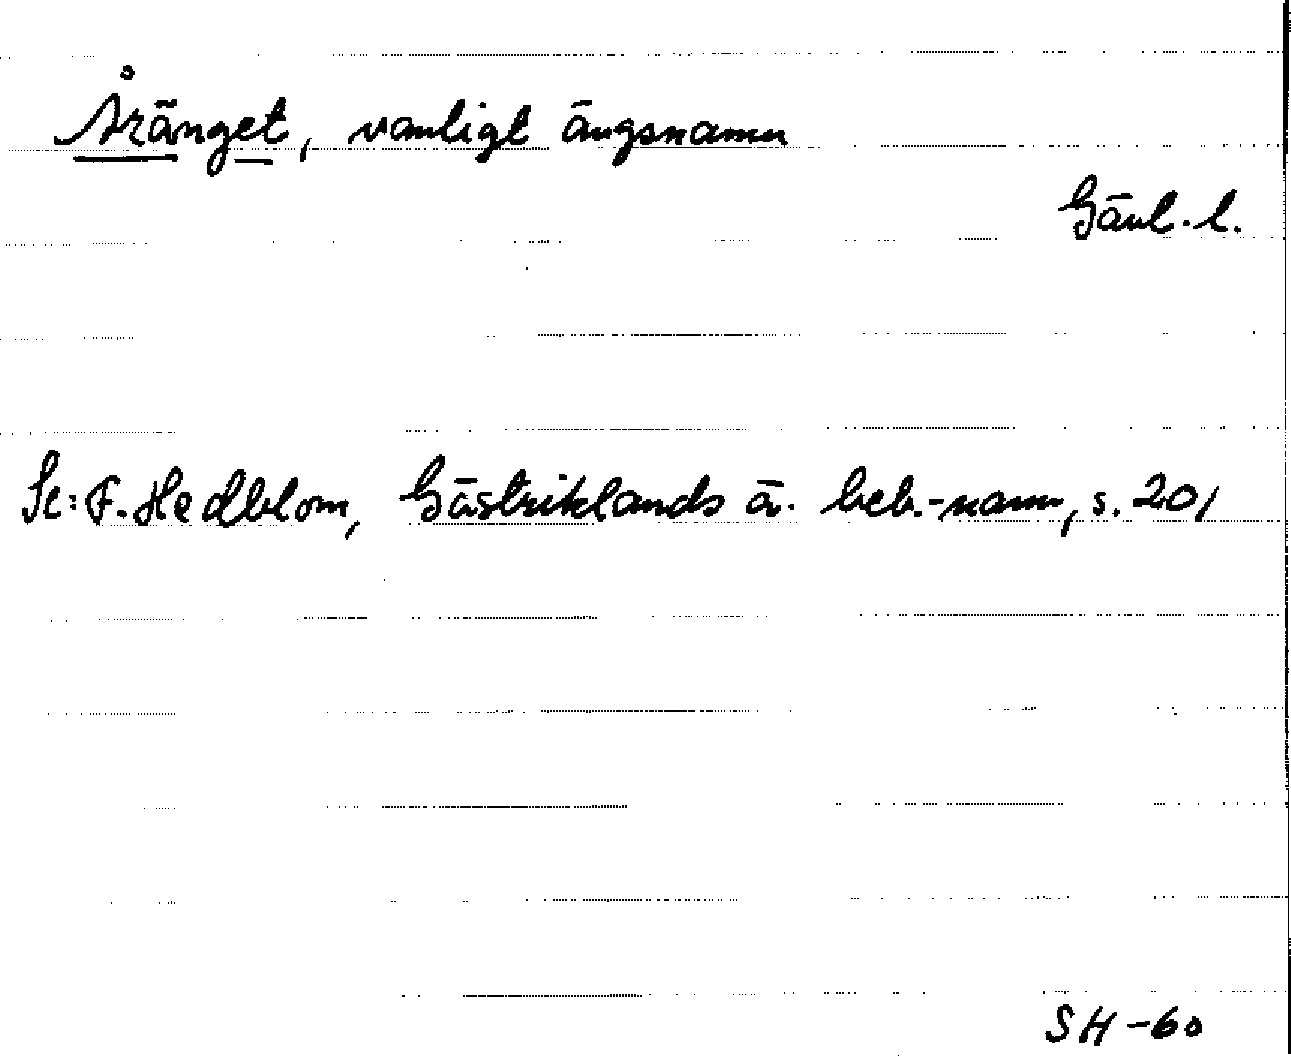 Åränget, vanligt ängsnamn
Gävl. l.
Se: F. Hedblom, Gästriklands ä. beb.-namn, s. 201
SH-60